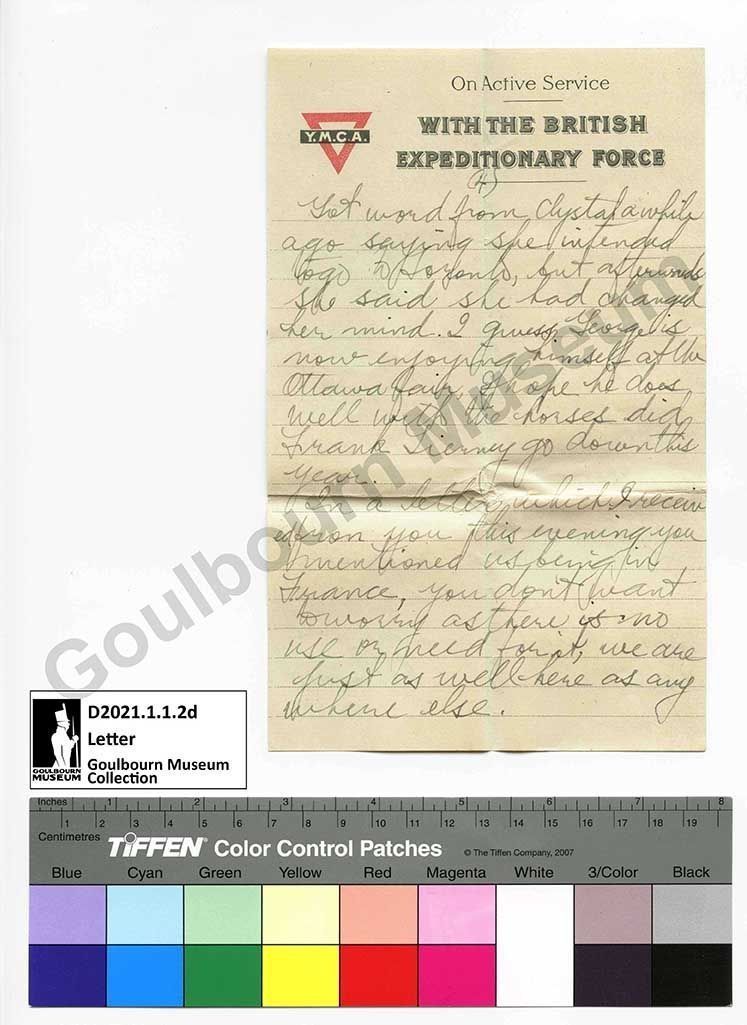 On Active Service
Y.M.C.A.
WITH THE BRITISH
EXPEDITIONARY FORCE
(4)
Got word from Clystal a while
ago saying she intended
to go to Toronto, but afterwards
she said she had changed
her mind. I guess George is
now enjoying himself at the
Ottawa fair I hope he does
well with the horses did
Frank Tierney go down this
year.
In a letter which I receiv
ed from you this evening you
mentioned us being in
France, you don't want
to worry as there is no
use or need for it, we are
just as well here as any
where else.
Goulbourn Museum
D2021.1.1.2d
Letter
Goulbourn Museum
Collection
GOULBOURN
MUSEUM
Inches 1 2 3 4 5 6 7 8
Centimetres 1 2 3 4 5 6 7 8 9 10 11 12 13 14 15 16 17 18 19
TIFFEN® Color Control Patches © The Tiffen Company, 2007
Blue Cyan Green Yellow Red Magenta White 3/Color Black